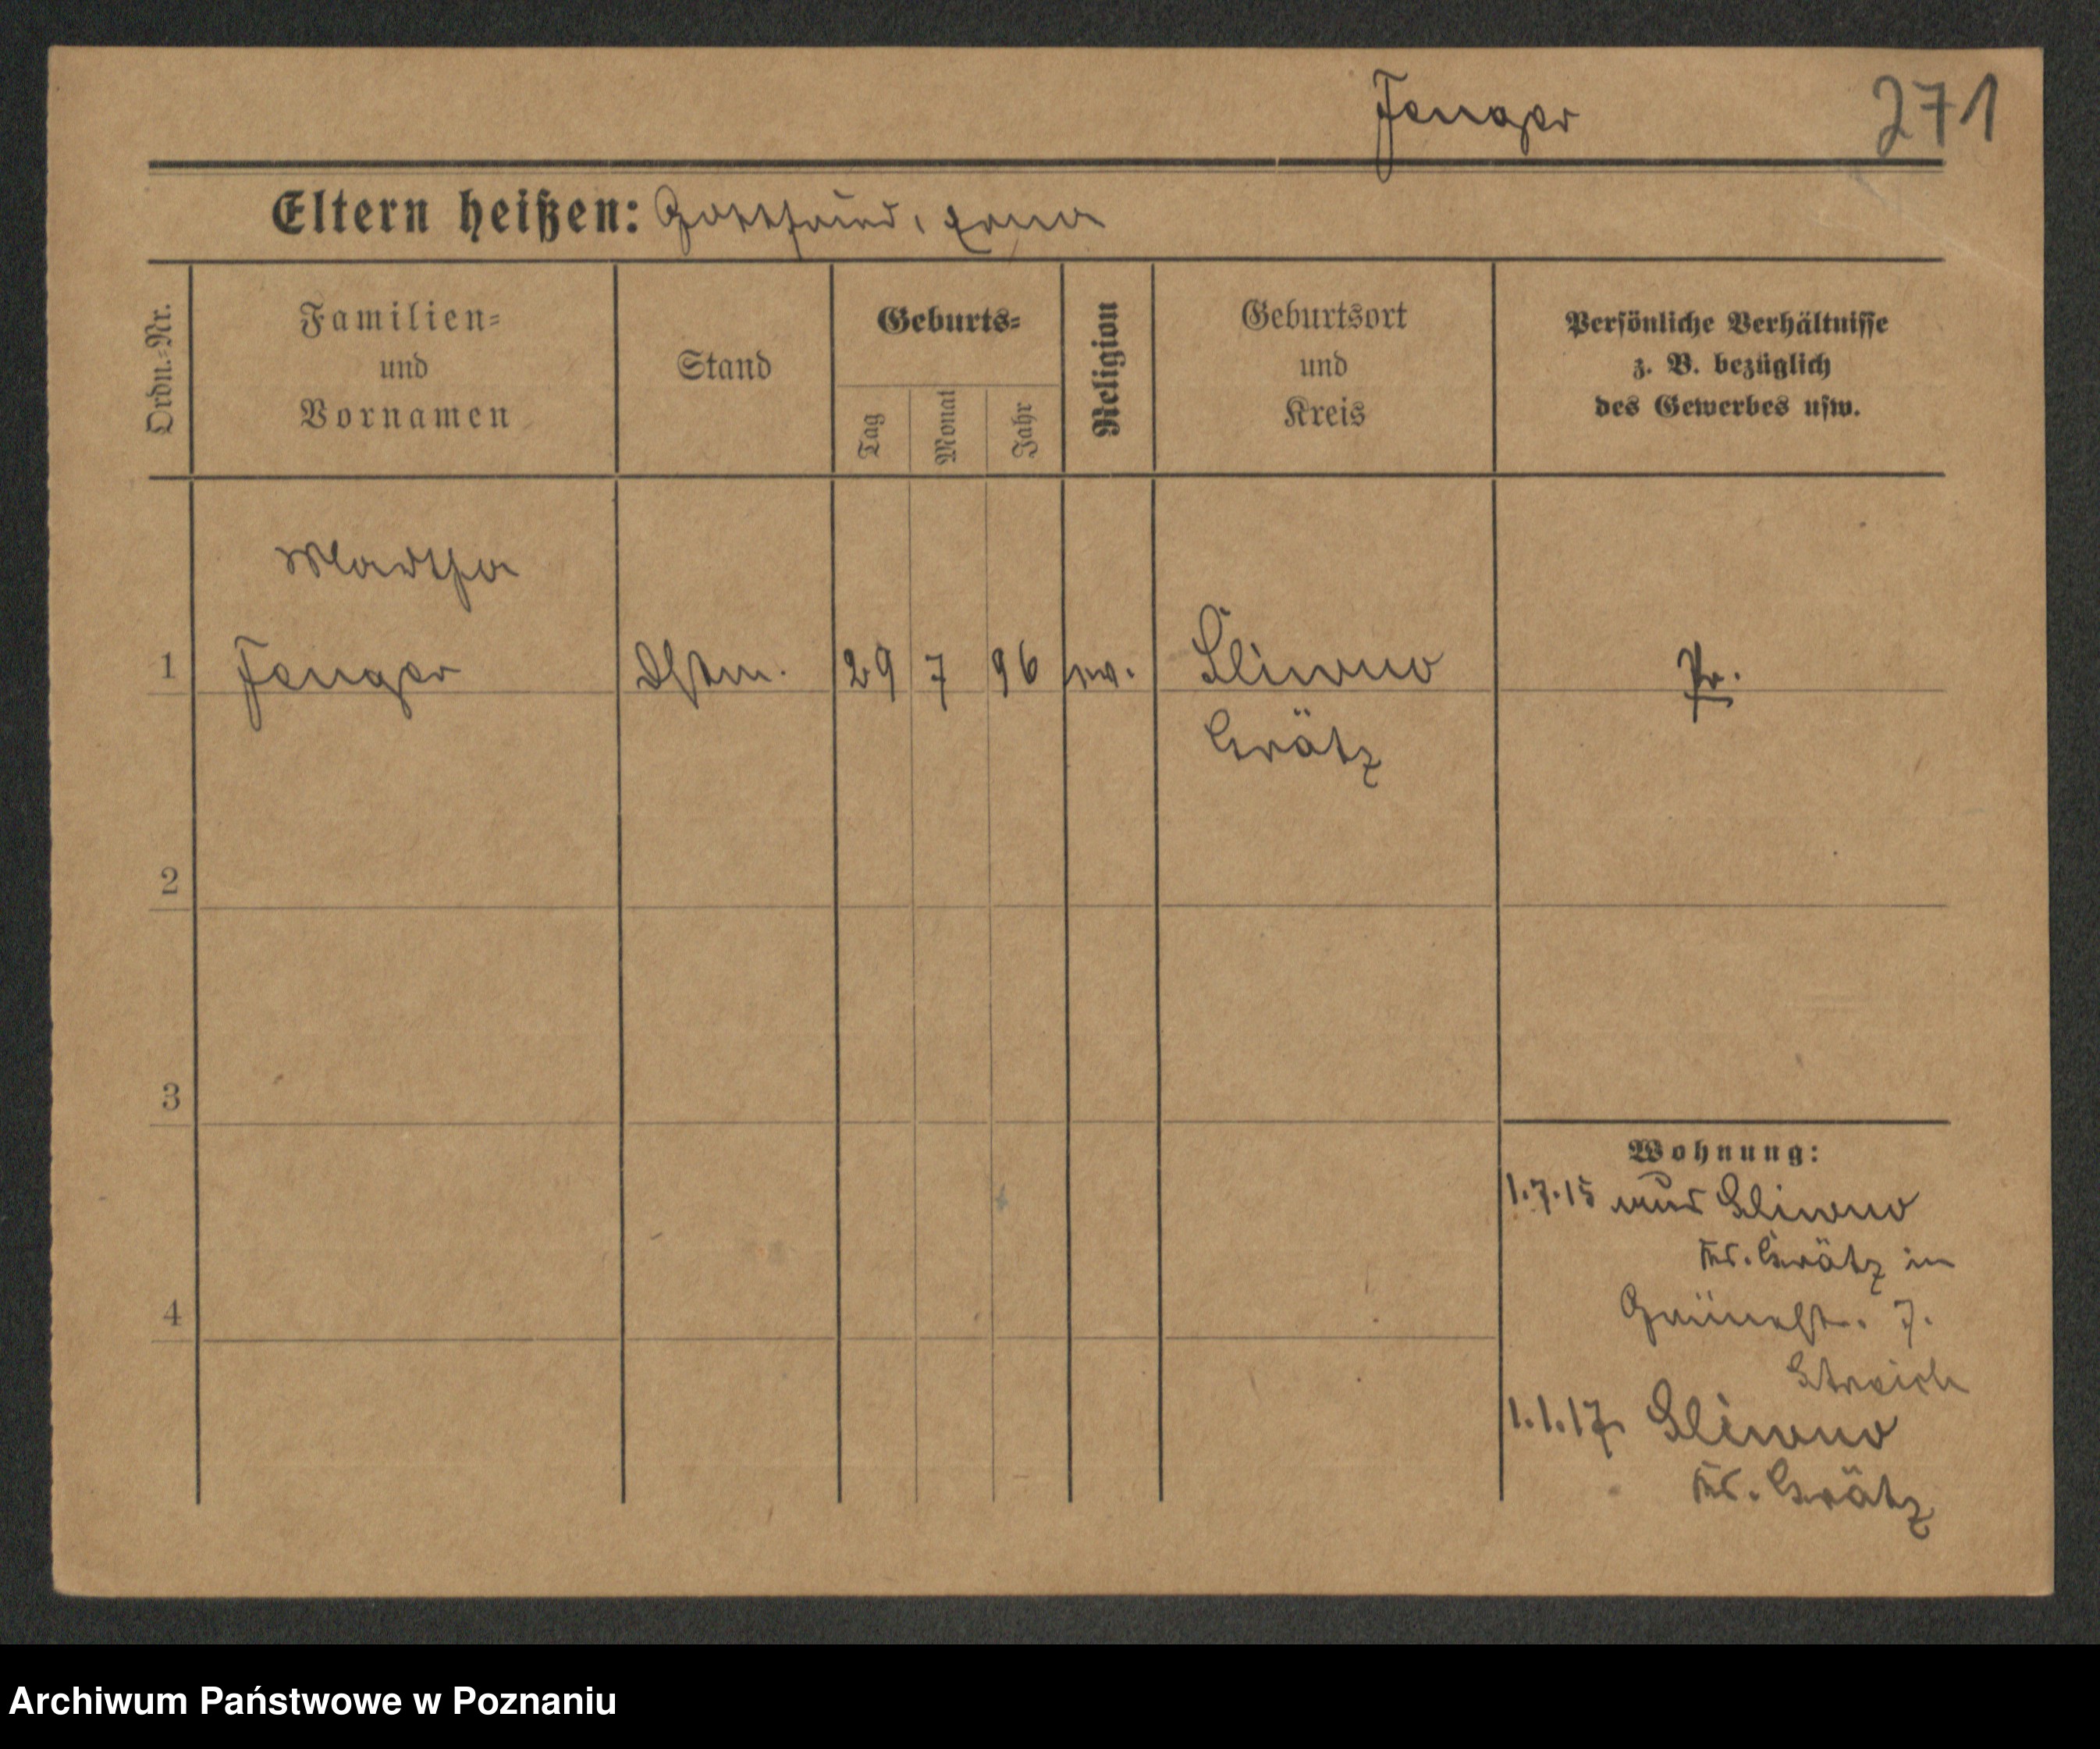 Fenger 271
Eltern heißen: Gottfried, Erna
Ordn.=Nr.
Familien=
und
Vornamen
Stand
Geburts=
Tag
Monat
Jahr
Religion
Geburtsort
und
Kreis
Persönliche Verhältnisse
z. B. bezüglich
des Gewerbes usw.
Martha
1 Fenger Dstm. 29 7 96 ev. Śliwno Pr.
Grätz
2
3
4
Wohnung:
1.7.15 aus Sliwno
Kr. Grätz in
Grünestr. 7.
Streich
1.1.17 Sliwno
Kr. Grätz
Archiwum Państwowe w Poznaniu